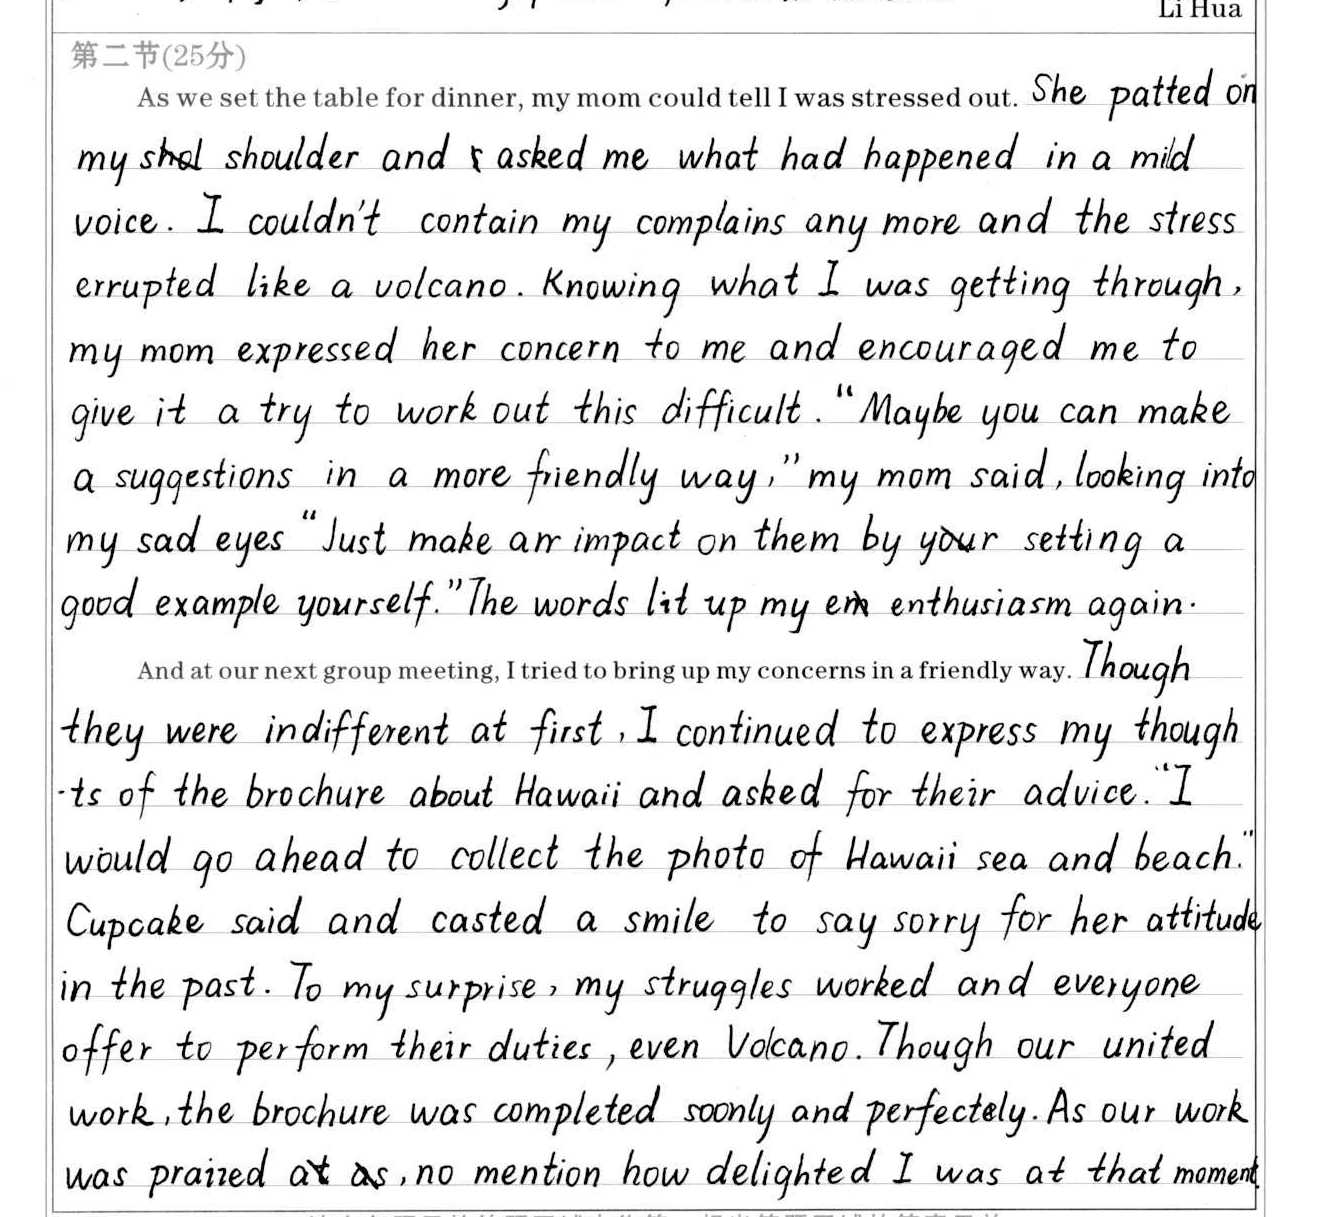 Li Hua
第二节(25分)
As we set the table for dinner, my mom could tell I was stressed out. She patted on
my shoulder and asked me what had happened in a mild
voice. I couldn't contain my complains any more and the stress
errupted like a volcano. Knowing what I was getting through,
my mom expressed her concern to me and encouraged me to
give it a try to work out this difficult. "Maybe you can make
a suggestions in a more friendly way," my mom said, looking into
my sad eyes "Just make an impact on them by your setting a
good example yourself." The words lit up my enthusiasm again.
And at our next group meeting, I tried to bring up my concerns in a friendly way. Though
they were indifferent at first, I continued to express my though
-ts of the brochure about Hawaii and asked for their advice. "I
would go ahead to collect the photo of Hawaii sea and beach."
Cupcake said and casted a smile to say sorry for her attitude
in the past. To my surprise, my struggles worked and everyone
offer to perform their duties, even Volcano. Though our united
work, the brochure was completed soonly and perfectely. As our work
was praized as, no mention how delighted I was at that moment.